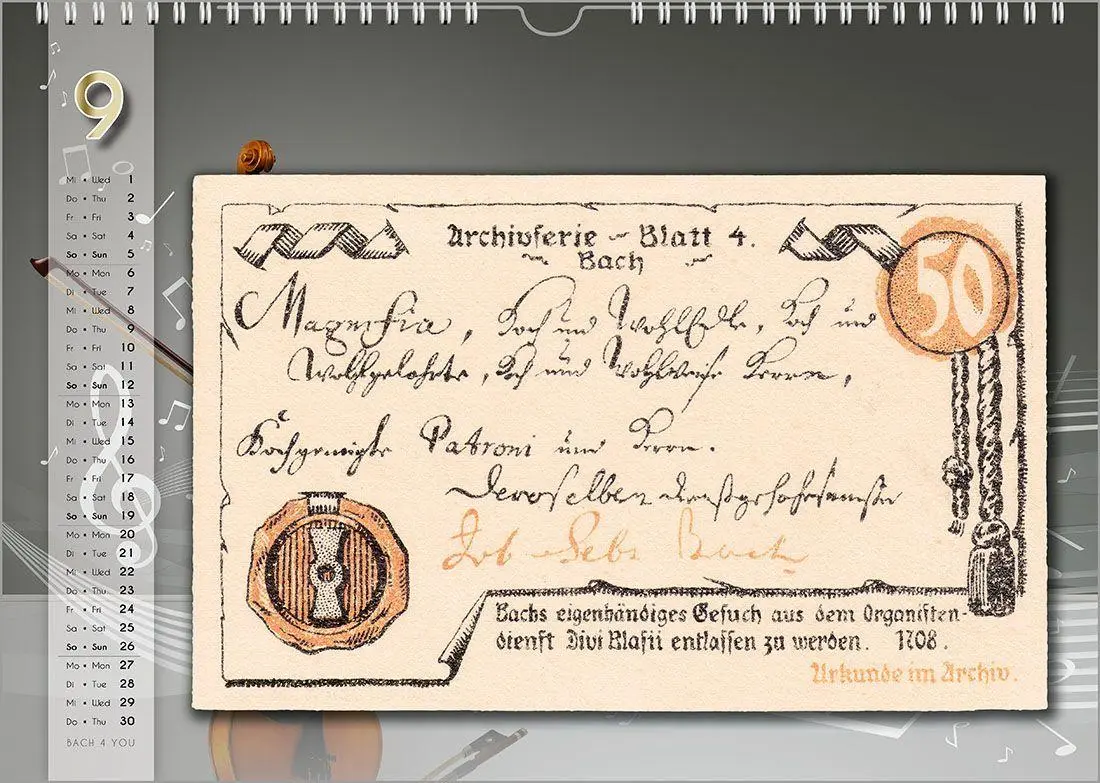 9
Mi • Wed 1
Do • Thu 2
Fr • Fri 3
Sa • Sat 4
So • Sun 5
Mo • Mon 6
Di • Tue 7
Mi • Wed 8
Do • Thu 9
Fr • Fri 10
Sa • Sat 11
So • Sun 12
Mo • Mon 13
Di • Tue 14
Mi • Wed 15
Do • Thu 16
Fr • Fri 17
Sa • Sat 18
So • Sun 19
Mo • Mon 20
Di • Tue 21
Mi • Wed 22
Do • Thu 23
Fr • Fri 24
Sa • Sat 25
So • Sun 26
Mo • Mon 27
Di • Tue 28
Mi • Wed 29
Do • Thu 30
BACH 4 YOU
Archivserie - Blatt 4.
Bach
50
Hoch und WohlEdle, Hoch und
Wohlgelahrte, Hoch und Wohlweise Herren,
Hochgeneigte Patroni und Herren.
Deroselben
Joh Sebs Bach
Bachs eigenhändiges Gesuch aus dem Organisten-
dienst Divi Blasii entlassen zu werden. 1708.
Urkunde im Archiv.